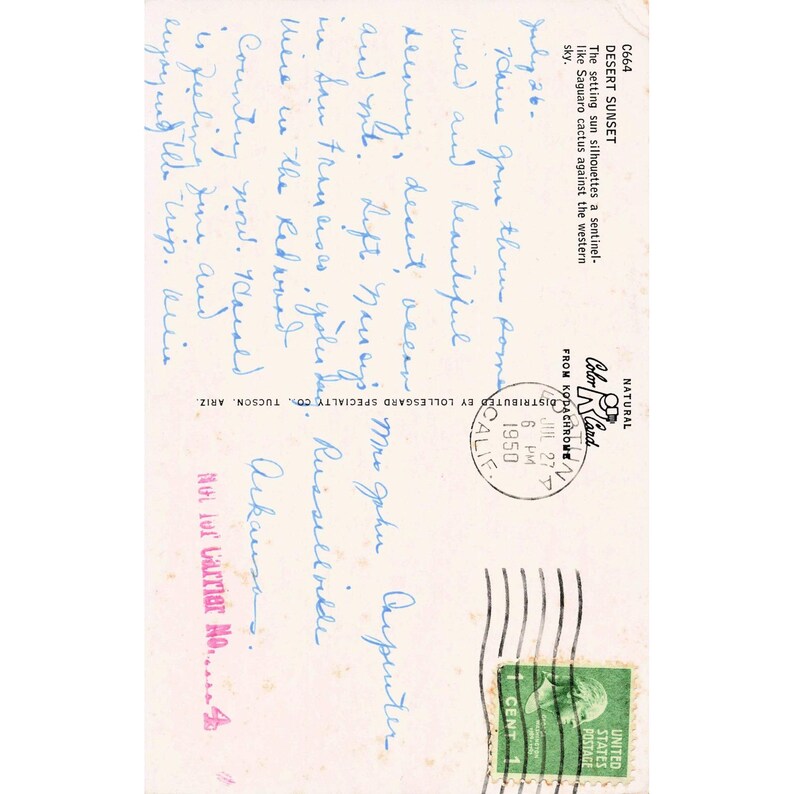 C664
DESERT SUNSET
The setting sun silhouettes a sentinel-
like Saguaro cactus against the western
sky.
July 26-
Have gone thru some
wild and beautiful
scenery, desert, ocean
and Mt. Left Nancy's
in San Francisco yesterday.
We're in the Redwood
Country now. Harold
is feeling fine and
enjoying the trip.
DISTRIBUTED BY LOLLESGARD SPECIALTY CO., TUCSON, ARIZ.
NATURAL
Color Card
FROM KODACHROME
JUL 27
6 PM
1950
CALIF.
UNITED
STATES
POSTAGE
WASHINGTON
1 CENT 1
Mrs John Carpenter
Russellville
Arkansas.
Not for Carrier No......4